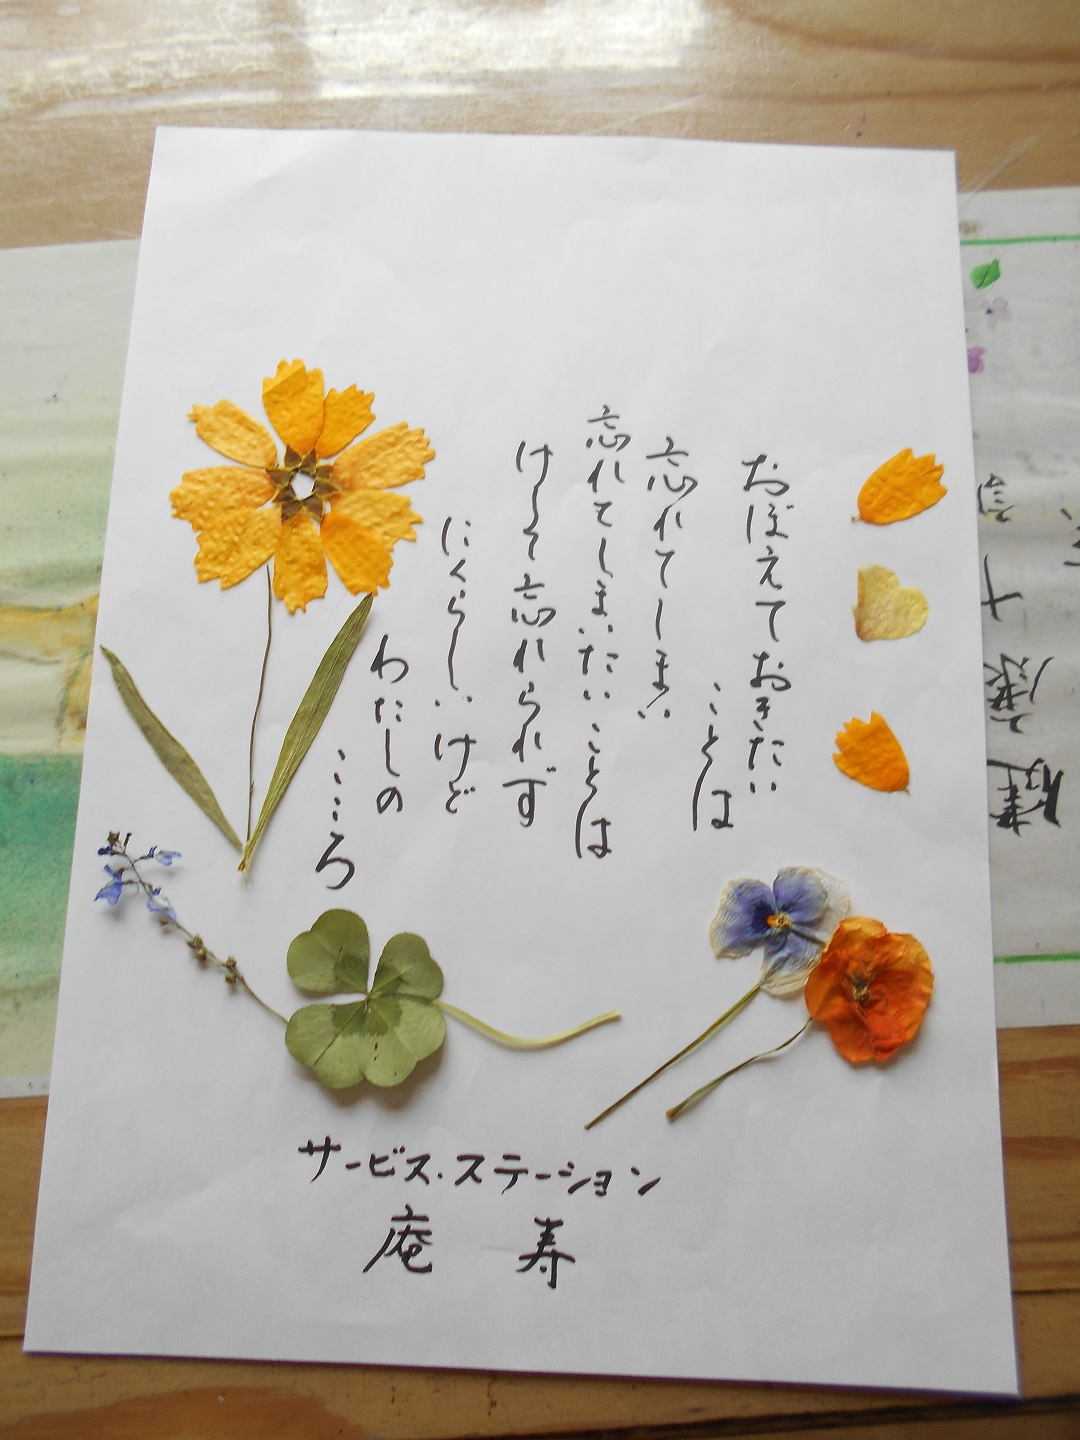 おぼえておきたい
ことは
忘れてしまい
忘れてしまいたいことは
けして忘れられず
にくらしいけど
わたしの
こころ
サービス・ステーション
庵 寿